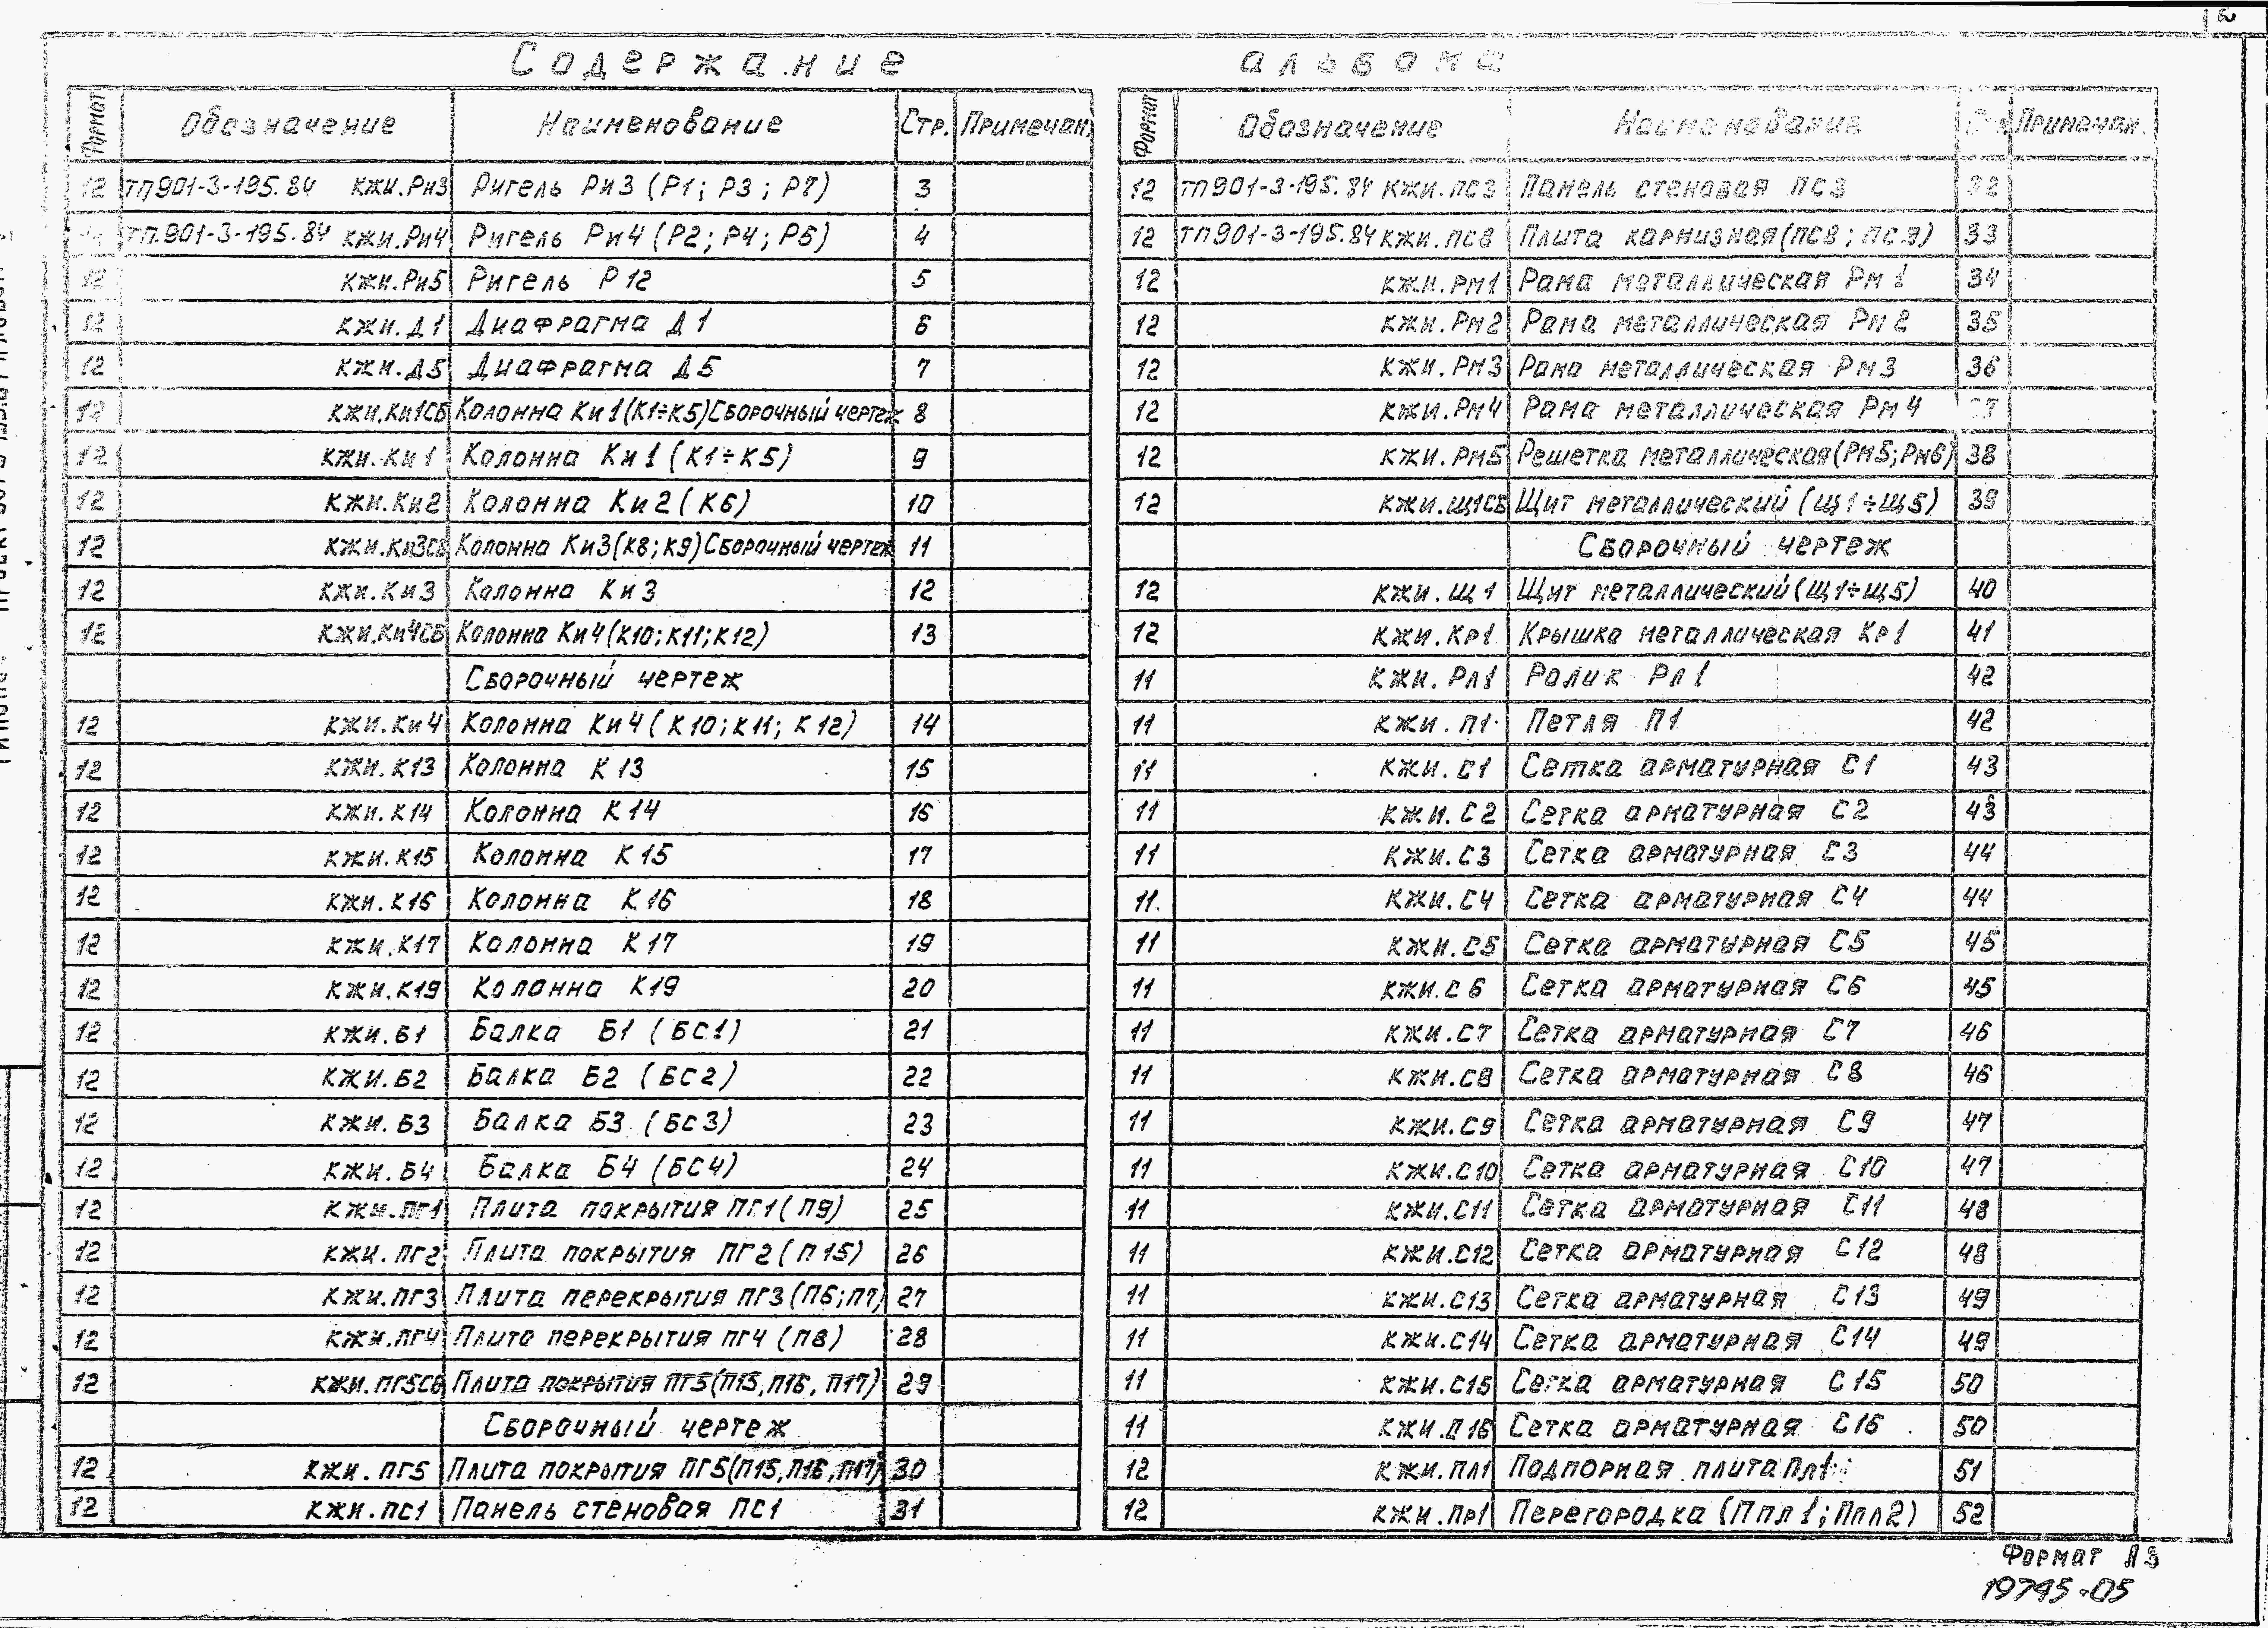 2
Содержание альбома
Формат Обозначение Наименование Стр. Примечан.
12 ТП901-3-195.84 КЖИ.Ри3 Ригель Ри3 (Р1; Р3; Р7) 3
ТП.901-3-195.84 КЖИ.Ри4 Ригель Ри4 (Р2; Р4; Р6) 4
12 КЖИ.Ри5 Ригель Р12 5
12 КЖИ.Д1 Диафрагма Д1 6
12 КЖИ.Д5 Диафрагма Д5 7
12 КЖИ.Ки1СБ Колонна Ки1(К1÷К5)Сборочный чертеж 8
12 КЖИ.Ки1 Колонна Ки1 (К1÷К5) 9
12 КЖИ.Ки2 Колонна Ки2 (К6) 10
12 КЖИ.Ки3СБ Колонна Ки3(К8; К9)Сборочный чертеж 11
12 КЖИ.Ки3 Колонна Ки3 12
12 КЖИ.Ки4СБ Колонна Ки4(К10; К11; К12) 13
Сборочный чертеж
12 КЖИ.Ки4 Колонна Ки4 (К10; К11; К12) 14
12 КЖИ.К13 Колонна К13 15
12 КЖИ.К14 Колонна К14 16
12 КЖИ.К15 Колонна К15 17
12 КЖИ.К16 Колонна К16 18
12 КЖИ.К17 Колонна К17 19
12 КЖИ.К19 Колонна К19 20
12 КЖИ.Б1 Балка Б1 (БС1) 21
12 КЖИ.Б2 Балка Б2 (БС2) 22
12 КЖИ.Б3 Балка Б3 (БС3) 23
12 КЖИ.Б4 Балка Б4 (БС4) 24
12 КЖИ.ПГ1 Плита покрытия ПГ1 (П9) 25
12 КЖИ.ПГ2 Плита покрытия ПГ2 (П15) 26
12 КЖИ.ПГ3 Плита перекрытия ПГ3 (П6; П7) 27
12 КЖИ.ПГ4 Плита перекрытия ПГ4 (П8) 28
12 КЖИ.ПГ5СБ Плита покрытия ПГ5(П15, П16, П17) 29
Сборочный чертеж
12 КЖИ.ПГ5 Плита покрытия ПГ5(П15, П16, П17) 30
12 КЖИ.ПС1 Панель стеновая ПС1 31
Формат Обозначение Наименование Примечан.
12 ТП901-3-195.84 КЖИ.ПС3 Панель стеновая ПС3 32
12 ТП901-3-195.84 КЖИ.ПС8 Плита карнизная(ПС8; ПС9) 33
12 КЖИ.РМ1 Рама металлическая РМ1 34
12 КЖИ.РМ2 Рама металлическая РМ2 35
12 КЖИ.РМ3 Рама металлическая РМ3 36
12 КЖИ.РМ4 Рама металлическая РМ4 37
12 КЖИ.РМ5 Решетка металлическая(РМ5; РМ6) 38
12 КЖИ.Щ1СБ Щит металлический (Щ1÷Щ5) 39
Сборочный чертеж
12 КЖИ.Щ1 Щит металлический (Щ1÷Щ5) 40
12 КЖИ.Кр1 Крышка металлическая Кр1 41
11 КЖИ.Рл1 Ролик Рл1 42
11 КЖИ.П1 Петля П1 42
11 КЖИ.С1 Сетка арматурная С1 43
11 КЖИ.С2 Сетка арматурная С2 43
11 КЖИ.С3 Сетка арматурная С3 44
11. КЖИ.С4 Сетка арматурная С4 44
11 КЖИ.С5 Сетка арматурная С5 45
11 КЖИ.С6 Сетка арматурная С6 45
11 КЖИ.С7 Сетка арматурная С7 46
11 КЖИ.С8 Сетка арматурная С8 46
11 КЖИ.С9 Сетка арматурная С9 47
11 КЖИ.С10 Сетка арматурная С10 47
11 КЖИ.С11 Сетка арматурная С11 48
11 КЖИ.С12 Сетка арматурная С12 48
11 КЖИ.С13 Сетка арматурная С13 49
11 КЖИ.С14 Сетка арматурная С14 49
11 КЖИ.С15 Сетка арматурная С15 50
11 КЖИ.Д16 Сетка арматурная С16 50
12 КЖИ.Пл1 Подпорная плита Пл1 51
12 КЖИ.Пр1 Перегородка (Ппл1; Ппл2) 52
Формат А3
19745-05